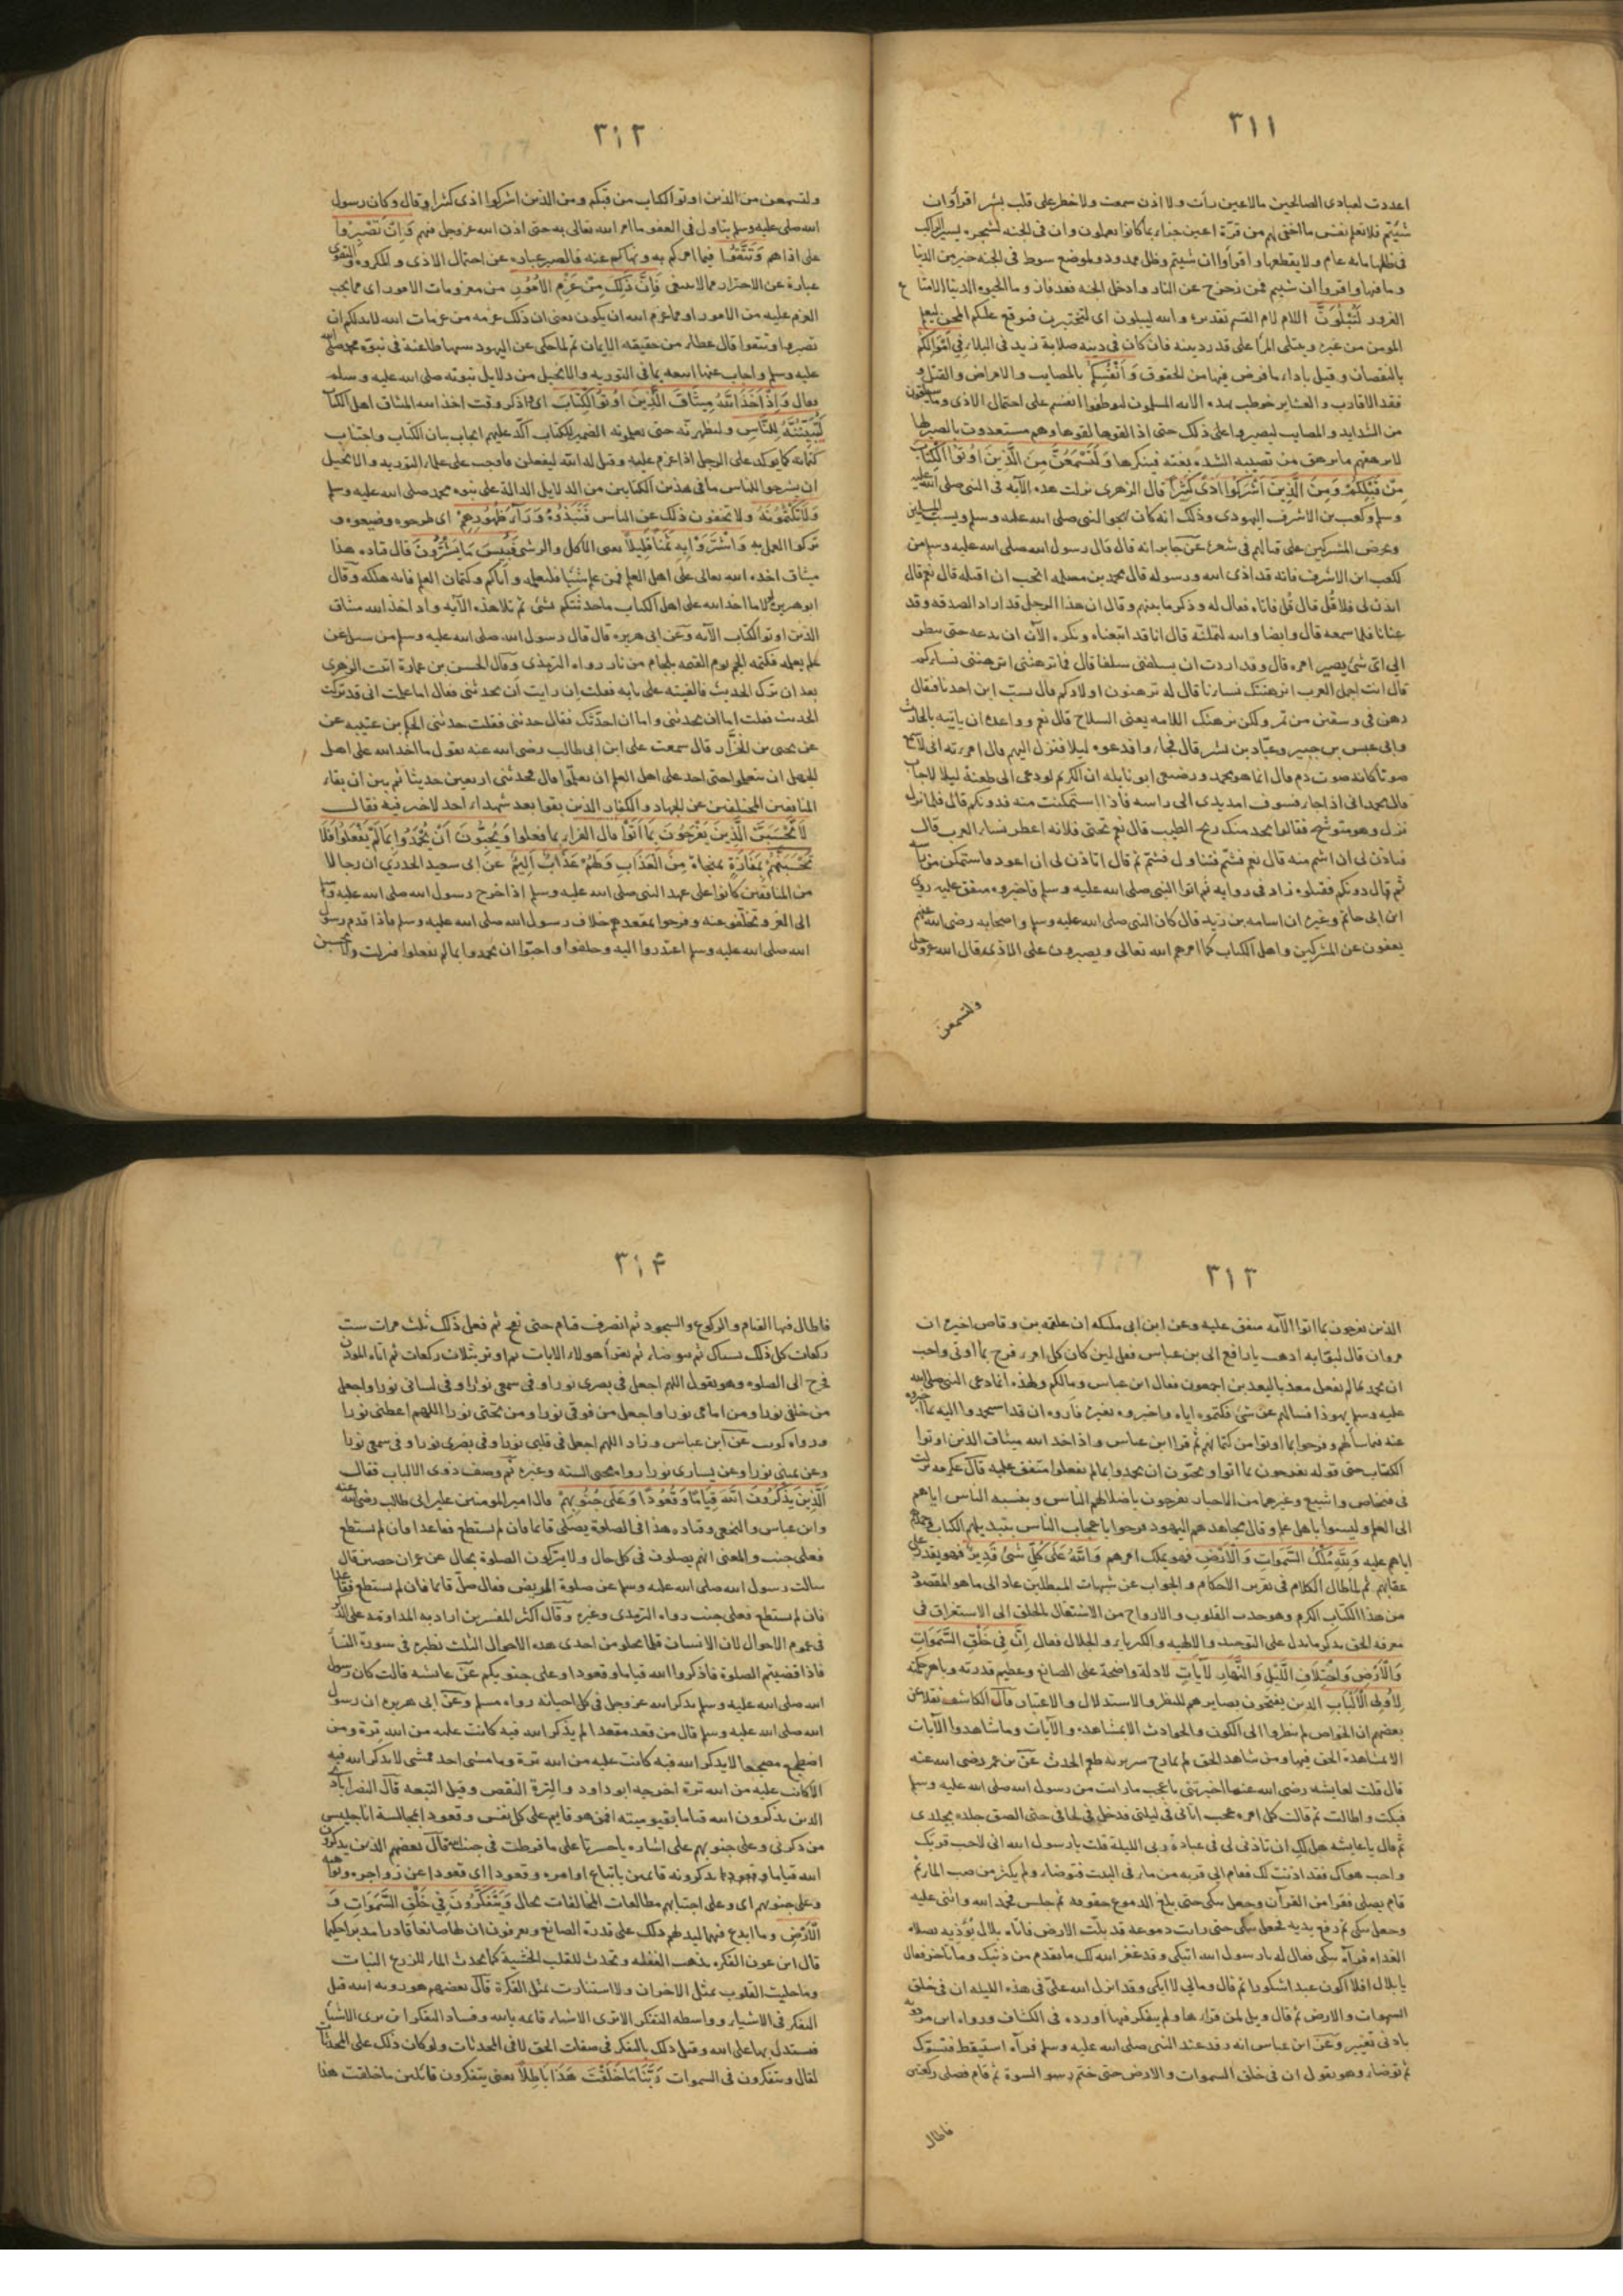 ٣١١
اعددت لعبادى الصالحين مالاعين رأت ولا اذن سمعت ولاخطر على قلب بشر اقرأوان
شئتم فلا تعلم نفس ما اخفى لهم من قرّة اعين جزاء بما كانوا يعملون وان فى الجنه لشجره يسير الراكب
فى ظلها مايه عام ولا يقطعها واقرأوا ان شيتم وظل ممدود ولموضع سوط فى الجنه خير من الدنيا
وما فيها واقروا ان شيتم فمن زحزح عن النار وادخل الجنه فقد فاز وما الحيوه الدنيا الامتا ع
الغرور لَتُبْلَوُنَّ اللام لام القسم تقديره والله ليبلون اى لتختبرن فيوقع عليكم المحن ليعلم
المومن من غيره ويبتلى المرأ على قدر دينه فان كان فى دينه صلابة زيد فى البلاء فِي اَمْوَالِكُمْ
بالنقصان وقيل باداء ما فرض فيها من الحقوق وَاَنْفُسِكُمْ بالمصايب والامراض والقتل و
فقد الاقارب والعشاير خوطب بهذه الايه المسلمون ليوطنوا انفسهم على احتمال الاذى وما سيلقون
من الشدايد والمصايب ليصبروا على ذلك حتى اذ القوها لقوها وهم مستعدون بالصبر لها
لا يرهقهم ما يرهق من تصيبه الشده بغته فينكرها وَلَتَسْمَعُنَّ مِنَ الَّذِينَ اُوتُوا الْكِتَابَ
مِنْ قَبْلِكُمْ وَمِنَ الَّذِينَ اَشْرَكُوا اَذًى كَثِيرًا قال الزهرى نزلت هذه الآيه فى النبى صلى الله عليه
وسلم وكعب بن الاشرف اليهودى وذلك انه كان يهجو النبى صلى الله عليه وسلم ويسب المسلمين
ويحرض المشركين على قتالهم فى شعره عَن جابر انه قال قال رسول الله صلى الله عليه وسلم من
لكعب ابن الاشرف فانه قد اذى الله ورسوله قال محمد بن مسلمه اتحب ان اقتله قال نعم قال
ايذن لى فلاقل قال قُل فاتاه فقال له وذكر ما بينهم وقال ان هذا الرجل قد اراد الصدقه وقد
عنّانا فلما سمعه قال وايضا والله لتملنّه قال انا قد اتبعناه ونكره الآن ان ندعه حتى ننظر
الى اى شئ يصير امره قال وقد اردت ان يسلفنى سلفا قال فما ترهننى اترهننى نساءكم
قال انت اجمل العرب انرهنك نساءنا قال له ترهنون اولادكم قال يسب ابن احدنا فيقال
رهن فى وسقين من تمر ولكن نرهنك اللامه يعنى السلاح قال نعم وواعده ان ياتيه بالحارث
وابى عبس بن جبير وعبّاد بن بشر قال فجاؤا فدعوه ليلا فنزل اليهم قال امرءته انى لاسمع
صوتا كانه صوت دم قال انما هو محمد ورضيعى ابو نايله ان الكريم لو دعى الى طعنة ليلا لاجاب
قال محمد انى اذا جاء فسوف امد يدى الى راسه فاذا استمكنت منه فدونكم قال فلما نزل
نزل وهو متوشح فقالوا نجد منك ريح الطيب قال نعم تحتى فلانه اعطر نساء العرب قال
فتاذن لى ان اشم منه قال نعم فشم فتناول فشم ثم قال اتاذن لى ان اعود فاستمكن من
ثم قال دونكم فقتلوه زاد فى روايه ثم اتوا النبى صلى الله عليه وسلم فاخبروه متفق عليه روى
ابن ابى حاتم وغيره ان اسامه بن زيد قال كان النبى صلى الله عليه وسلم واصحابه رضى الله عنهم
يعفون عن المشركين واهل الكتاب كما امرهم الله تعالى ويصبرون على الاذى قال الله عزوجل
ولتسمعن
٣١٢
ولتسمعن من الذين اوتوا الكتاب من قبلكم ومن الذين اشركوا اذى كثيرا وقال وكان رسول
الله صلى عليه وسلم يتاول فى العفو ما امر الله تعالى به حتى اذن الله عزوجل فيهم وَاِنْ تَصْبِرُوا
على اذاهم وَتَتَّقُوا فيما امركم به ونهاكم عنه فالصبر عباره عن احتمال الاذى والمكروه والتقوى
عبارة عن الاحتراز عما لا ينبغى فَاِنَّ ذَلِكَ مِنْ عَزْمِ الْاُمُورِ من معزومات الامور اى مما يجب
العزم عليه من الامور او مما عزم الله ان يكون يعنى ان ذلك عزمه من عزمات الله لابد لكم ان
تصبروا وتتقوا قال عطاء من حقيقه الايمان ثم لما حكى عن اليهود شبها طاعنة فى نبوة محمد صلى الله
عليه وسلم واجاب عنها اتبعه بما فى التوريه والانجيل من دلايل نبوته صلى الله عليه وسلم
فقال وَاِذْ اَخَذَ اللَّهُ مِيثَاقَ الَّذِينَ اُوتُوا الْكِتَابَ اى اذكر وقت اخذ الله الميثاق اهل الكتا
لَتُبَيِّنُنَّهُ لِلنَّاسِ ولتظهرنه حتى تعلمونه الضمير للكتاب اكد عليهم ايجاب بيان الكتاب واجتناب
كتمانه كما يوكد على الرجل اذا عزم عليه وقيل له الله ليفعلن فاوجب على علماء التوريه والانجيل
ان يشرحوا للناس ما فى هذين الكتابين من الدلايل الدالة على نبوه محمد صلى الله عليه وسلم
وَلَا تَكْتُمُونَهُ ولا تخفون ذلك عن الناس فَنَبَذُوهُ وَرَآءَ ظُهُورِهِمْ اى طرحوه وضيعوه و
تركوا العمل به وَاشْتَرَوْا بِهِ ثَمَنًا قَلِيلًا يعنى الآكل والرشى فَبِئْسَ مَا يَشْتَرُونَ قال قتاده هذا
ميثاق اخذه الله تعالى على اهل العلم فمن علم شيئا فليعلمه واياكم وكتمان العلم فانه هلكه وقال
ابو هريره لولا ما اخذ الله على اهل الكتاب ما حدثتكم بشئ ثم تلا هذه الآيه واذ اخذ الله ميثاق
الذين اوتوا الكتاب الآيه وعَن ابى هريره قال قال رسول الله صلى الله عليه وسلم من سئل عن
علم يعلمه فكتمه الجم يوم القيمه بلجام من نار رواه الترمذى وقال الحسن بن عمارة اتيت الزهرى
بعد ان ترك الحديث فالفيته على بابه فقلت ان رايت ان تحدثنى فقال اما علمت انى قد تركت
الحديث فقلت اما ان تحدثنى واما ان احدّثك فقال حدثنى فقلت حدثنى الحكم بن عتيبه عن
عن يحيى بن الجزّار قال سمعت على ابن ابى طالب رضى الله عنه يقول ما اخذ الله على اهل
الجهل ان يتعلموا حتى اخذ على اهل العلم ان يعلّموا قال فحدثنى اربعين حديثا ثم بين ان بقاء
المنافقين المتخلفين عن الجهاد والكفار الذين بقوا بعد شهداء احد لا خير فيه فقال
لَا تَحْسَبَنَّ الَّذِينَ يَفْرَحُونَ بِمَا اَتَوْا قال الفراء بما فعلوا وَيُحِبُّونَ اَنْ يُحْمَدُوا بِمَا لَمْ يَفْعَلُوا فَلَا
تَحْسَبَنَّهُمْ بِمَفَازَةٍ بمنجاة مِنَ الْعَذَابِ وَلَهُمْ عَذَابٌ اَلِيمٌ عَن ابى سعيد الخدرى ان رجالا
من المنافقين كانوا على عهد النبى صلى الله عليه وسلم اذا خرح رسول الله صلى الله عليه وسلم
الى الغزو تخلّفو عنه وفرحوا بمقعدهم خلاف رسول الله صلى الله عليه وسلم فاذا قدم رسول
الله صلى الله عليه وسلم اعتذروا اليه وحلفوا واحبّوا ان يحمدوا بما لم يفعلوا فنزلت ولا تحسبن
٣١٣
الذين يفرحون بما اتوا الآيه متفق عليه وعن ابن ابى مليكه ان علقمه بن وقاص اخبره ان
مروان قال لبوّابه اذهب يا رافع الى بن عباس فقل لين كان كل امرء فرح بما اوتى واحب
ان يحمد بما لم يفعل معذبا ليعذبن اجمعون فقال ابن عباس ومالكم ولهذه انما دعى النبى صلى الله
عليه وسلم يهوذا فسالهم عن شئ فكتموه اياه واخبروه بغيره فاروه ان قد استحمدوا اليه بما اخبروه
عنه فيما سألهم وفرحوا بما اوتوا من كتمانهم ثم قرا ابن عباس واذ اخذ الله ميثاق الذين اوتوا
الكتاب حتى قوله يفرحون بما اتوا ويحبّون ان يحمدوا بما لم يفعلوا متفق عليه قال عكرمه نزلت
فى فنحاص واشيع وغيرهما من الاحبار يفرحون باضلالهم الناس وبنسبه الناس اياهم
الى العلم وليسوا باهل علم وقال مجاهد هم اليهود فرحوا باعجاب الناس بتبديلهم الكتاب وحمدهم
اياهم عليه وَلِلَّهِ مُلْكُ السَّمَوَاتِ وَالْاَرْضِ فهو يملك امرهم وَاللَّهُ عَلَى كُلِّ شَئٍ قَدِيرٌ فهو يقدر على
عقابهم ثم لما طال الكلام فى تقرير الاحكام والجواب عن شبهات المبطلين عاد الى ما هو المقصود
من هذا الكتاب الكرم وهو جذب القلوب والارواح من الاشتغال بالخلق الى الاستغراق فى
معرفه الحق بذكر ما يدل على التوحيد والالهيه والكبرياء والجلال فقال اِنَّ فِي خَلْقِ السَّمَوَاتِ
وَالْاَرْضِ وَاخْتِلَافِ اللَّيْلِ وَالنَّهَارِ لَآيَاتٍ لادلة واضحة على الصانع وعظيم قدرته وباهر حكمته
لِاُولِي الْاَلْبَابِ الذين يفتحون بصايرهم للنظر والاستدلال والاعتبار قال الكاشف نقلا عن
بعضهم ان الخواص لم ينظروا الى الكون والحوادث الا بمشاهده والآيات وما شاهدوا الآيات
الا بمشاهدة الحق فيها ومن شاهد الحق لم يمازح سريرته طعم الحدث عَن بن عمر رضى الله عنه
قال قلت لعايشه رضى الله عنها اخبرينى باعجب ما رايت من رسول الله صلى الله عليه وسلم
فبكت واطالت ثم قالت كل امره عجب اتانى فى ليلتى فدخل فى لحافى حتى الصق جلده بجلدى
ثم قال يا عايشه هل لك ان تاذنى لى فى عبادة ربى الليلة قلت يا رسول الله انى لاحب قربك
واحب هواك فقد اذنت لك فقام الى قربه من ماء فى البيت فتوضاء ولم يكثر من صب الماء ثم
قام يصلى فقرا من القرآن وجعل يبكى حتى بلغ الدموع حقويه ثم جلس فحمد الله واثنى عليه
وجعل يبكى ثم رفع يديه فجعل يبكى حتى رات دموعه قد بلّت الارض فاتاه بلال يؤذنه بصلاه
الغداه فرآه يبكى فقال له يا رسول الله اتبكى وقد غفر الله لك ما تقدم من ذنبك وما تاخر فقال
يا بلال افلا اكون عبدا شكورا ثم قال ومالى لا ابكى وقد انزل الله علىّ فى هذه الليله ان فى خلق
السموات والارض ثم قال ويل لمن قراءها ولم يتفكر فيها اورده فى الكشاف ورواه ابن مردويه
بادنى تغيير وَعَن ابن عباس انه رقد عند النبى صلى الله عليه وسلم فرآه استيقظ فتسوّك
ثم توضاء وهو يقول ان فى خلق السموات والارض حتى ختم السورة ثم قام فصلى ركعتين
فاطال
٣١۴
فاطال فيها القيام والركوع والسجود ثم انصرف فنام حتى نفخ ثم فعل ذلك ثلث مرات ست
ركعات كل ذلك يستاك ثم يتوضاء ثم يقرأ هولاء الايات ثم اوتر بثلاث ركعات ثم اتاه الموذن
فخرج الى الصلوه وهو يقول اللهم اجعل فى بصرى نورا وفى سمعى نورا وفى لسانى نورا واجعل
من خلفى نورا ومن امامى نورا واجعل من فوقى نورا ومن تحتى نورا اللهم اعطنى نورا
ورواه كريب عَن ابن عباس وزاد اللهم اجعل فى قلبى نورا وفى بصرى نورا وفى سمعى نورا
وعن يمينى نورا وعن يسارى نورا رواه محيى السنه وغيره ثم وصف ذوى الالباب فقال
اَلَّذِينَ يَذْكُرُونَ اللَّهَ قِيَامًا وَقُعُودًا وَعَلَى جُنُوبِهِمْ قال امير المومنين على ابن ابى طالب رضى الله عنه
وابن عباس والنخعى وقتاده هذا فى الصلوة يصلى قائما فان لم يستطع فقاعدا وان لم يستطع
فعلى جنب والمعنى انهم يصلون فى كل حال ولا يتركون الصلوة بحال عن عمران حصين قال
سالت رسول الله صلى الله عليه وسلم عن صلوة المريض فقال صلّ قائما فان لم يستطع فقاعدا
فان لم يستطع فعلى جنب رواه الترمذى وغيره وقال اكثر المفسرين اراد به المداومة على الذكر
فى عموم الاحوال لان الانسان قلما يخلو من احدى هذه الاحوال الثلث نظيره فى سورة النسأ
فاذا قضيتم الصلوة فاذكروا الله قياما وقعودا وعلى جنوبكم عَن عايشه قالت كان رسول
الله صلى الله عليه وسلم يذكر الله عزوجل فى كل احيانه رواه مسلم وعَن ابى هريره ان رسول
الله صلى الله عليه وسلم قال من قعد مقعدا لم يذكر الله فيه كانت عليه من الله ترة ومن
اضطجع مضجعا لا يذكر الله فيه كانت عليه من الله ترة وما مشى احد ممشى لا يذكر الله فيه
الا كانت عليه من الله ترة اخرجه ابو داود والترة النقص وقيل التبعه قال النصراباذى
الذين يذكرون الله قياما بقيوميته افمن هو قايم على كل نفس وقعودا بمجالسة انا جليس
من ذكرنى وعلى جنوبهم على اشاره يا حسرتا على ما فرطت فى جنب الله قال بعضهم الذين يذكرون
الله قياما وقعودا يذكرونه قائمين باتباع اوامره وقعودا اى قعودا عن زواجره ونواهيه
وعلى جنوبهم اى وعلى اجتنابهم مطالعات المخالفات بحال وَيَتَفَكَّرُونَ فِي خَلْقِ السَّمَوَاتِ وَ
الْاَرْضِ وما ابدع فيهما ليدلهم ذلك على قدرة الصانع ويعرفون ان لها صانعا قادرا مدبرا حكيما
قال ابن عون الفكره تذهب الغفله وتحدث للقلب الخشية كما يحدث الماء للزرع النبات
وما جليت القلوب بمثل الاحزان ولا استنارت بمثل الفكرة قال بعضهم هو رويه الله قبل
التفكر فى الاشياء وواسطه التفكر الا ترى الاشياء قائمه بالله وفساد التفكر ان يرى الاشيأ
فيستدل بها على الله وقيل ذلك بالتفكر فى صفات الحق لا فى المحدثات ولو كان ذلك على المحدثات
لقال ويتفكرون فى السموات رَبَّنَا مَا خَلَقْتَ هَذَا بَاطِلًا يعنى يتفكرون قائلين ما خلقت هذا